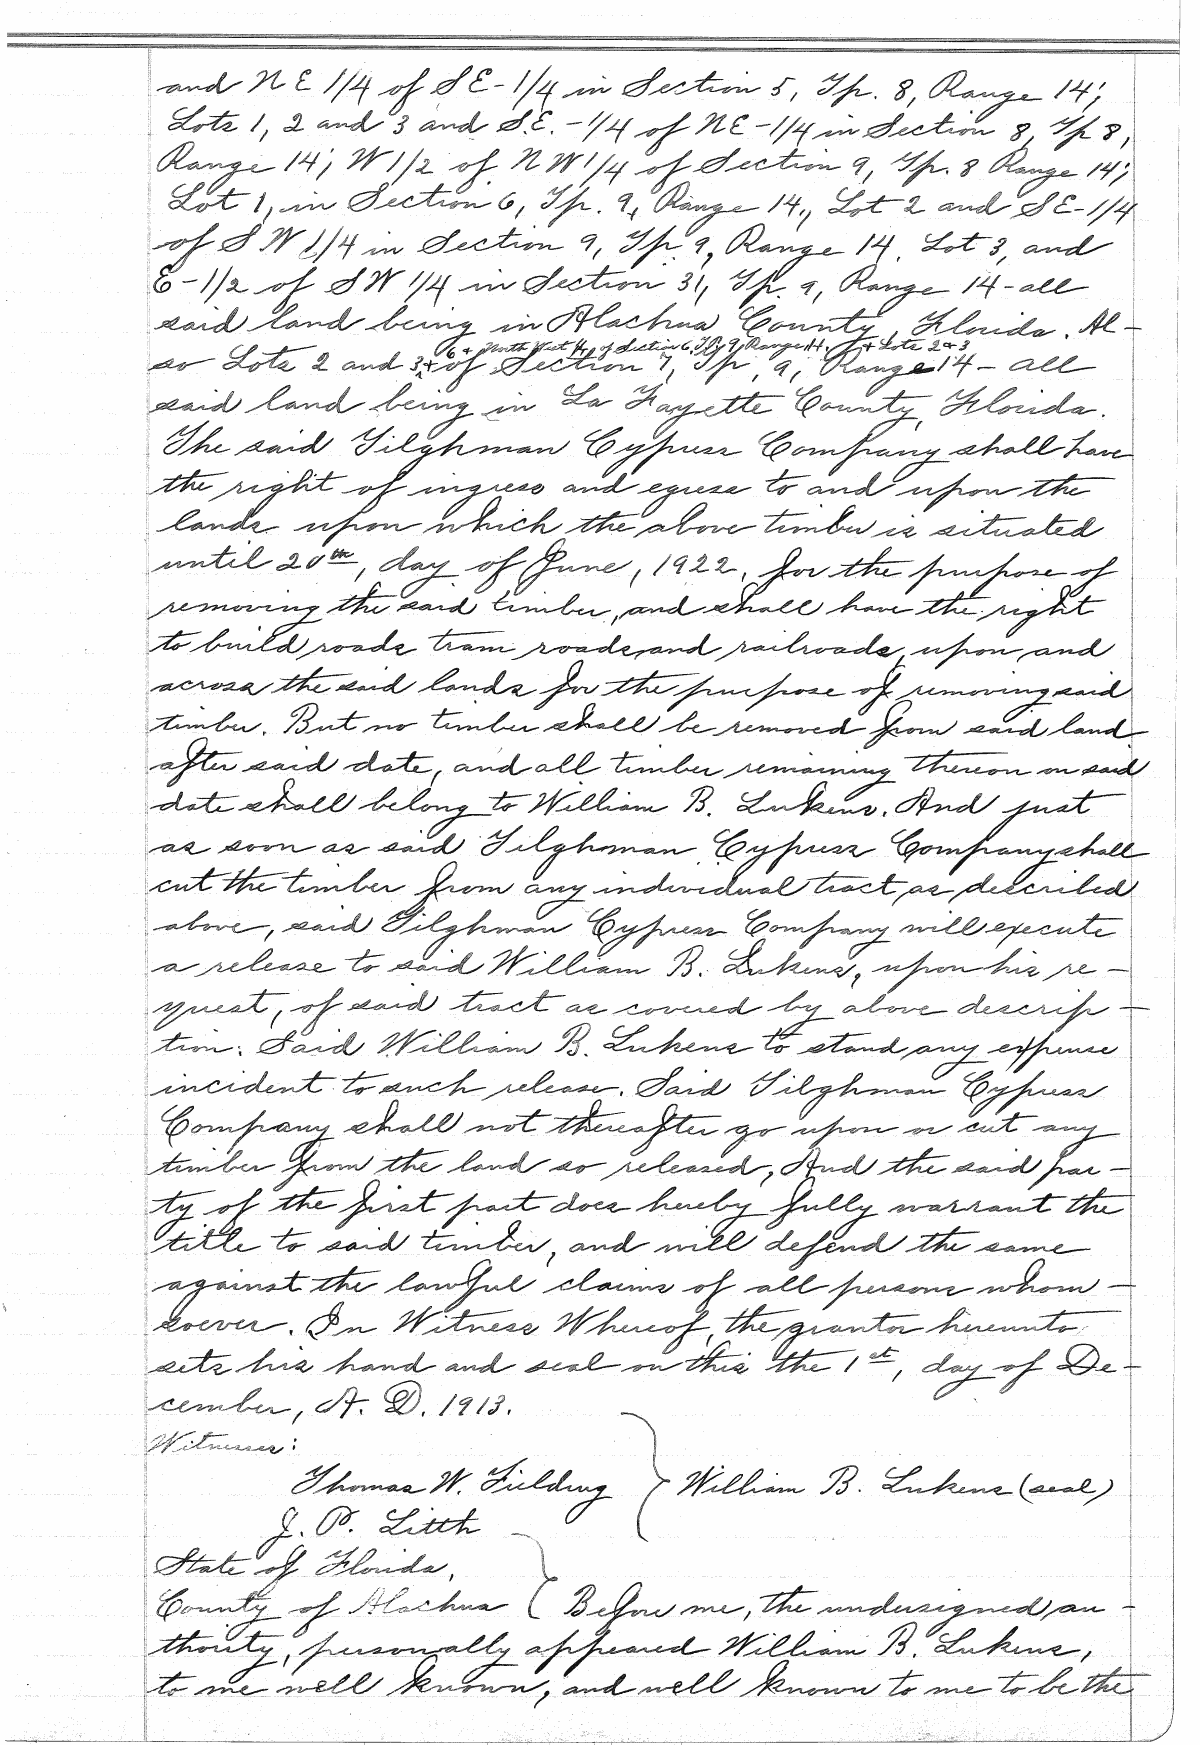 and N E 1/4 of S E-1/4 in Section 5, Tp. 8, Range 14;
Lots 1, 2 and 3 and S.E.-1/4 of NE-1/4 in Section 8, Tp 8,
Range 14; W 1/2 of N W 1/4 of Section 9, Tp. 8 Range 14;
Lot 1, in Section 6, Tp. 9, Range 14., Lot 2 and SE-1/4
of S W 1/4 in Section 9, Tp. 9, Range 14. Lot 3, and
E-1/2 of SW 1/4 in Section 31, Tp. 9, Range 14-all
said land being in Alachua County, Florida. Al-
6 & North West 1/4 of Section 6, Tp 9, Range 14, & Lots 2 & 3
so Lots 2 and 3 & of Section 7, Tp. 9, Range 14 - all
said land being in La Fayette County, Florida.
The said Tilghman Cypress Company shall have
the right of ingress and egress to and upon the
lands upon which the above timber is situated
until 20th, day of June, 1922, for the purpose of
removing the said timber, and shall have the right
to build roads tram roads and railroads, upon and
across the said lands for the purpose of removing said
timber. But no timber shall be removed from said land
after said date, and all timber remaining thereon on said
date shall belong to William B. Lukens. And just
as soon as said Tilghman Cypress Company shall
cut the timber from any individual tract as described
above, said Tilghman Cypress Company will execute
a release to said William B. Lukens, upon his re-
quest, of said tract as covered by above descrip-
tion: Said William B. Lukens to stand any expense
incident to such release. Said Tilghman Cypress
Company shall not thereafter go upon or cut any
timber from the land so released, And the said par-
ty of the first part does hereby fully warrant the
title to said timber, and will defend the same
against the lawful claims of all persons whom-
soever. In Witness Whereof, the grantor hereunto
sets his hand and seal on this the 1st, day of De-
cember, A. D. 1913.
Witnesses:
Thomas W. Fielding William B. Lukens (seal)
J. P. Litth
State of Florida,
County of Alachua Before me, the undersigned au-
thority, personally appeared William B. Lukens,
to me well known, and well known to me to be the